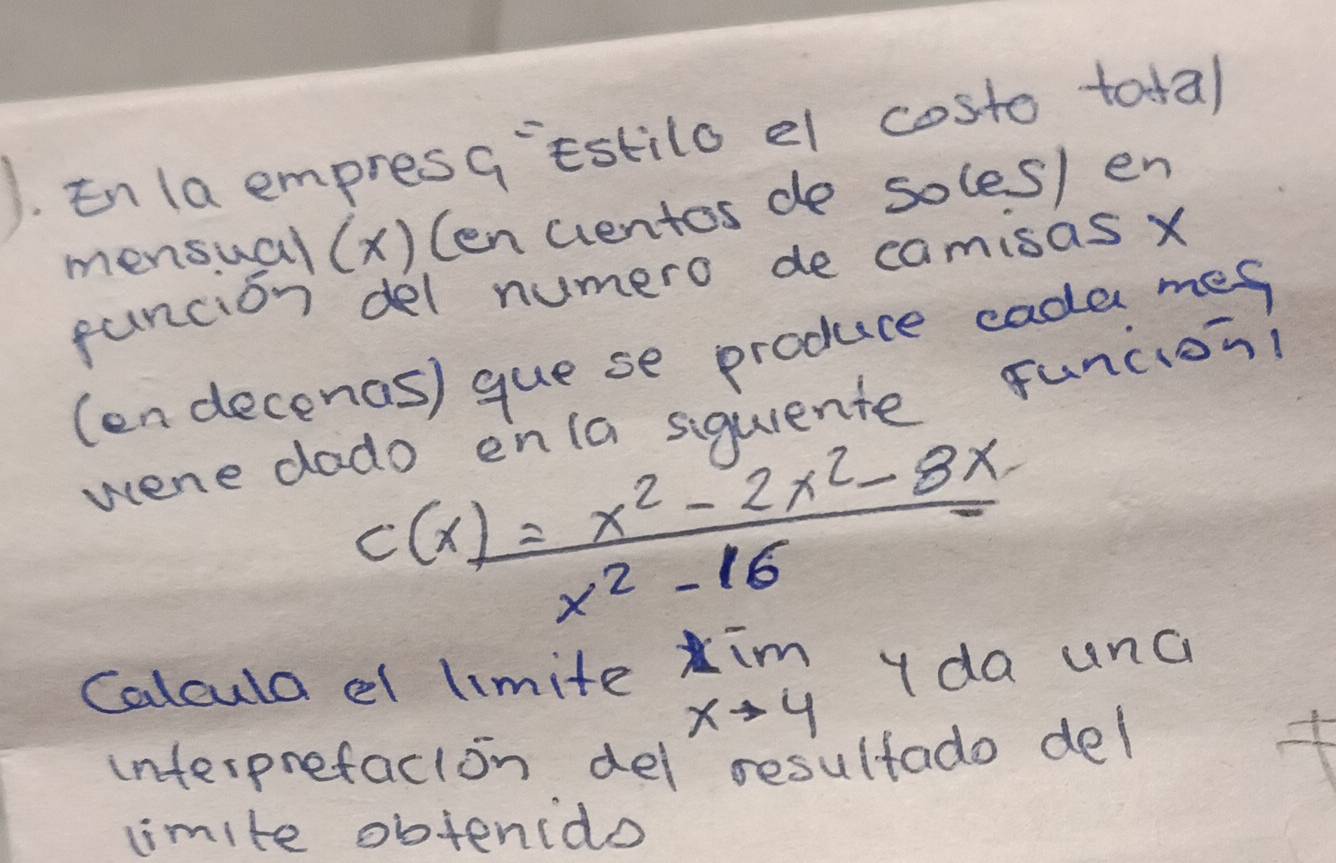 ). En la empresa "Estilo el costo total
mensual (x) (en cientos de soles) en
función del numero de camisas x
(en decenas) que se produce cada mes
viene dado en la siguiente función:
C(x) = x² - 2x² - 8x
x² - 16
Calcula el limite lim y da una
x→4
interpretación del resultado del
limite obtenido